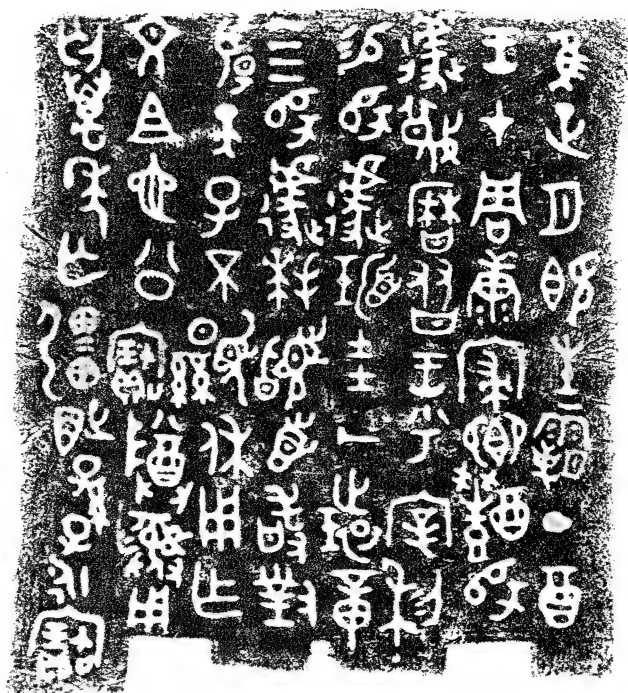 隹正月既生霸丁酉
王才周康寢鄉醴師
遽蔑曆友王乎宰利
易師遽珥圭一環章
四師遽拜𩒨首敢對
揚天子不顯休用乍
文且也公寶尊彝用
匄萬年亡疆百世孫子永寶